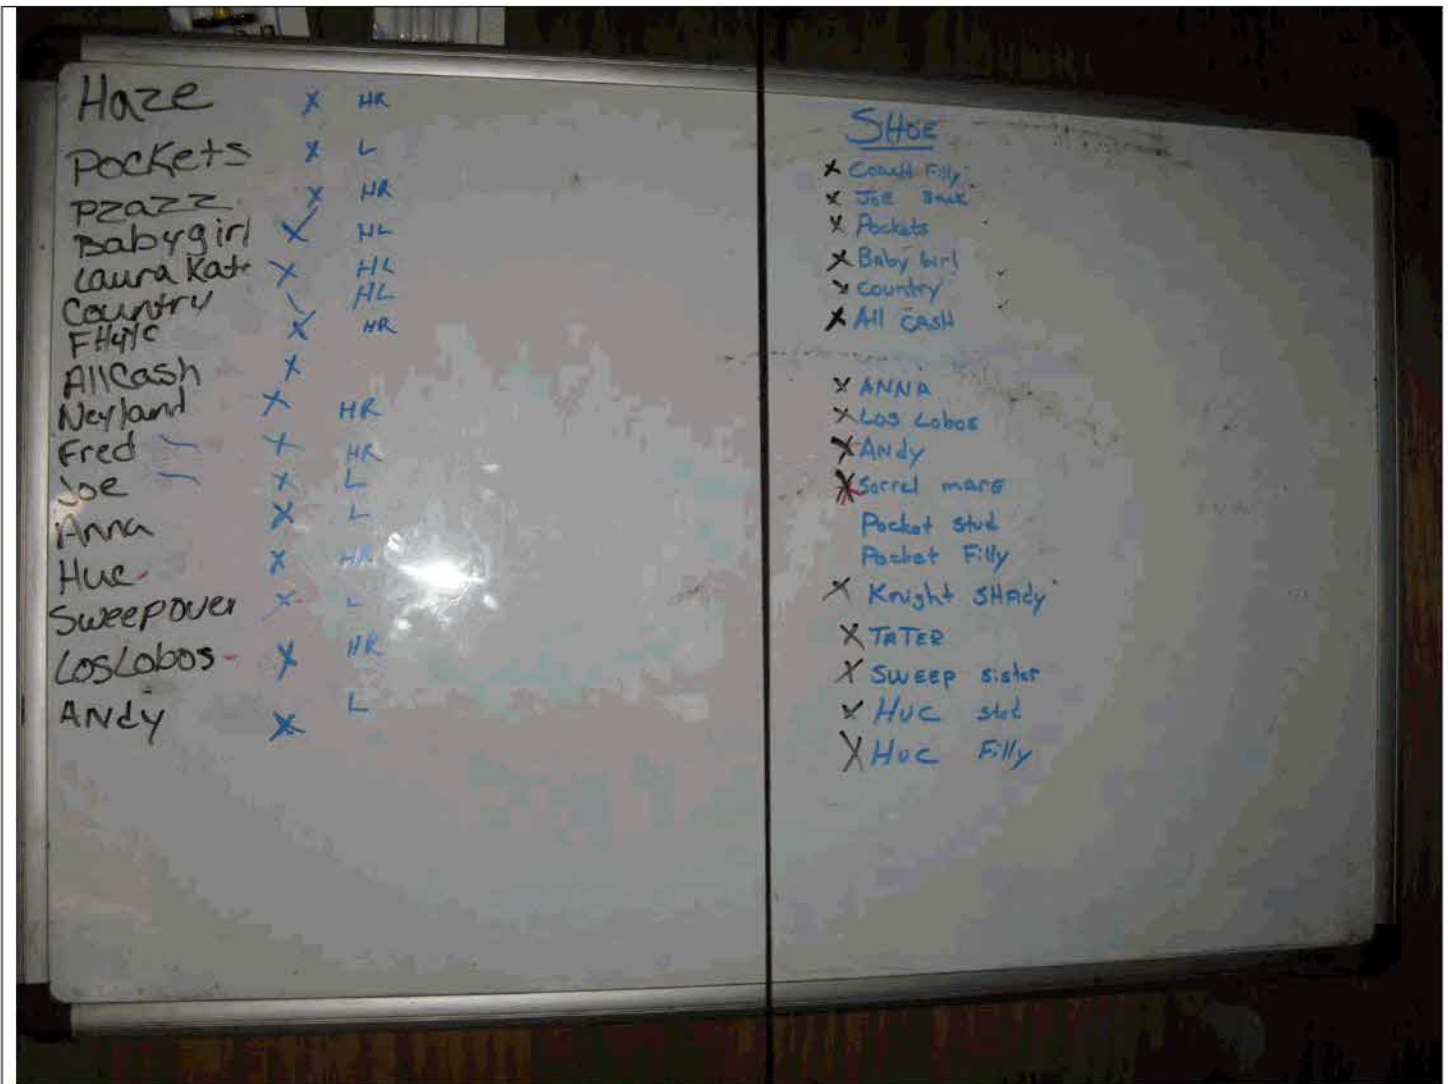 Haze X HR
Pockets X L
Pzazz X HR
Babygirl X HL
Laura Kate X HL
Country HL
X HR
AllCash X
Neyland X HR
Fred X HR
Joe X L
Anna X L
Huc X HR
Sweepover X L
LosLobos X HR
ANdy X L
SHOE
X Filly
X JOE
X Pockets
X Baby Girl
X Country
X All CASH
X ANNA
X LOS LOBOS
X ANdy
X Sorrel mare
Pocket stud
Pocket Filly
X Knight SHAdy
X TATER
X SWEEP sister
X HUC stud
X HUC Filly